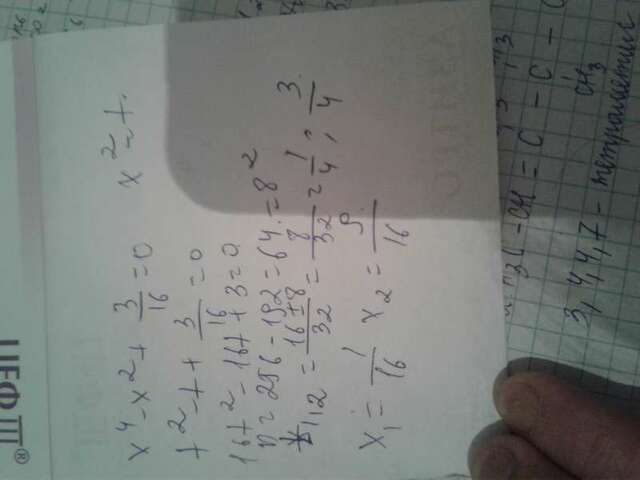 ЦЕФ III ®
x⁴ - x² + 3/16 = 0    x² = t.
t² - t + 3/16 = 0
16t² - 16t + 3 = 0.
D = 256 - 192 = 64 = 8²
t₁,₂ = (16 ± 8)/32 = 8/32 = 1/4 ; 3/4
x₁ = 1/16  x₂ = 9/16
- CH = C - C -
CH₃
3,4,4,7 - тетраметил